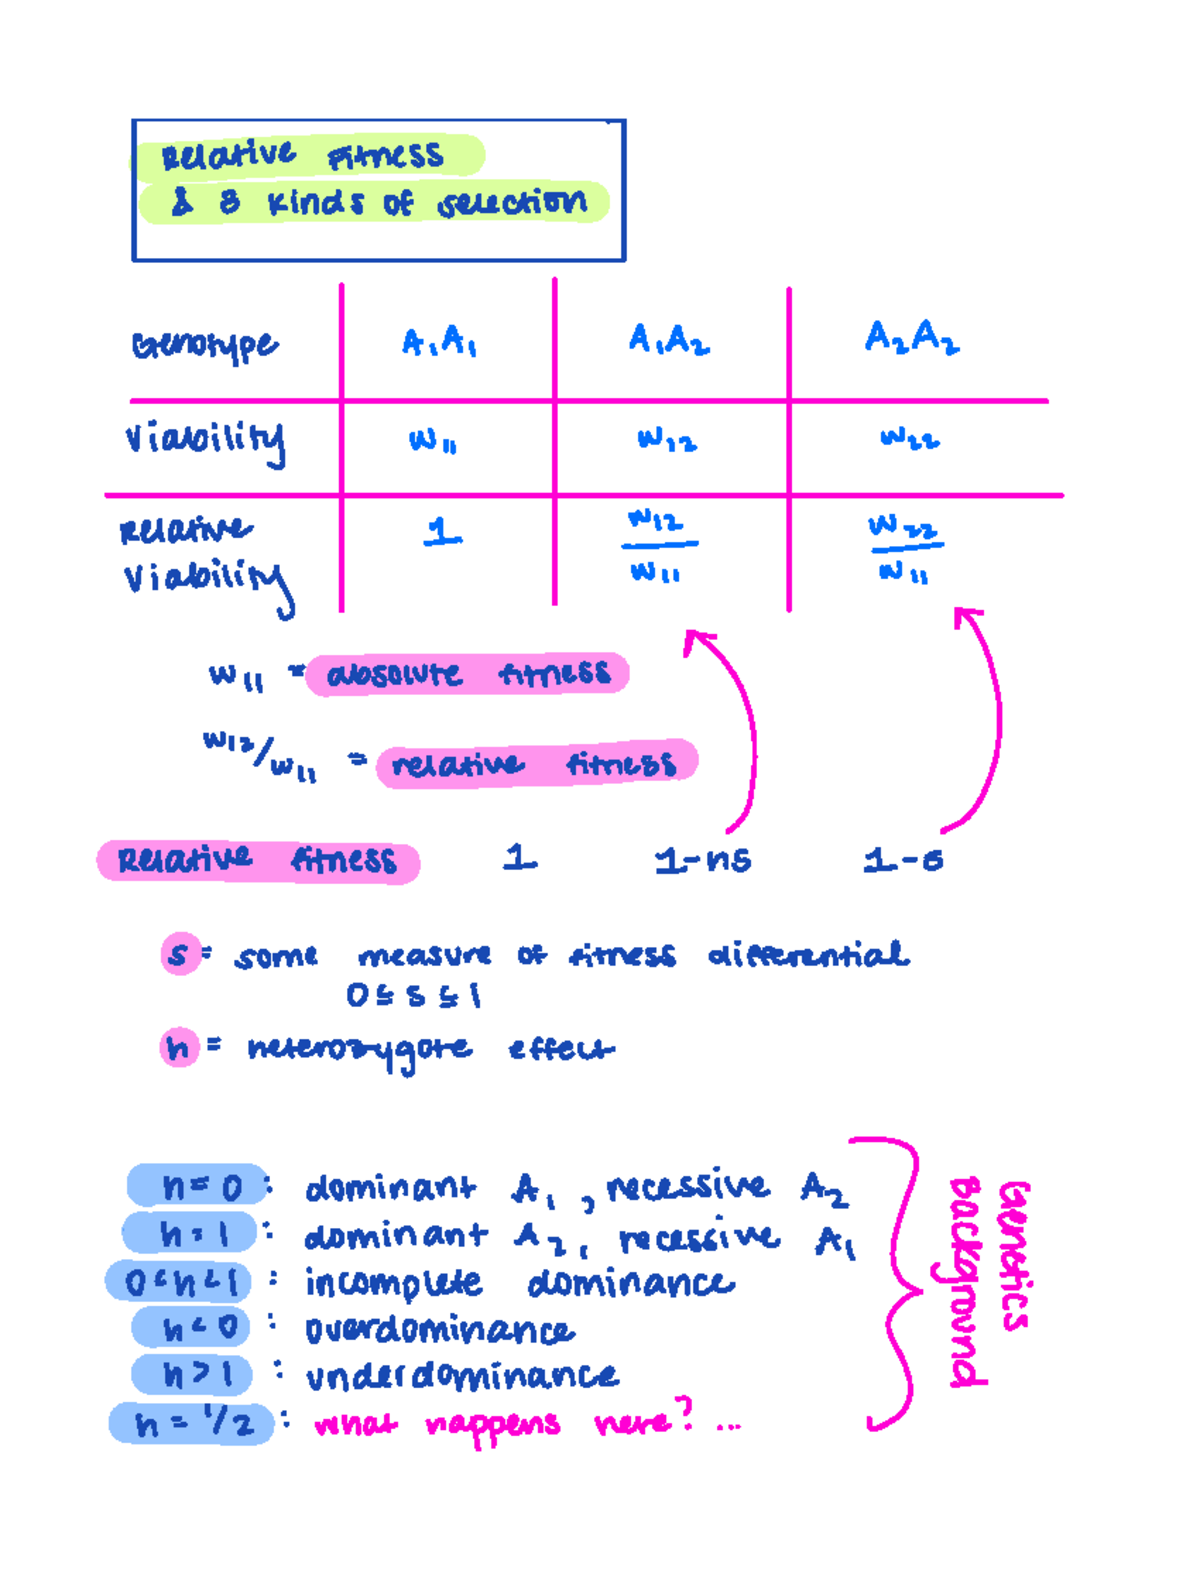 Relative fitness
& 3 kinds of selection
Genotype A₁A₁ A₁A₂ A₂A₂
Viability w₁₁ w₁₂ w₂₂
Relative Viability 1 w₁₂/w₁₁ w₂₂/w₁₁
w₁₁ = absolute fitness
w₁₂/w₁₁ = relative fitness
Relative fitness 1 1-hs 1-s
s = some measure of fitness differential
0 ≤ s ≤ 1
h = heterozygote effect
h = 0 : dominant A₁, recessive A₂
h = 1 : dominant A₂, recessive A₁
0 < h < 1 : incomplete dominance
h < 0 : overdominance
h > 1 : underdominance
h = 1/2 : what happens here? ...
Genetics
Background